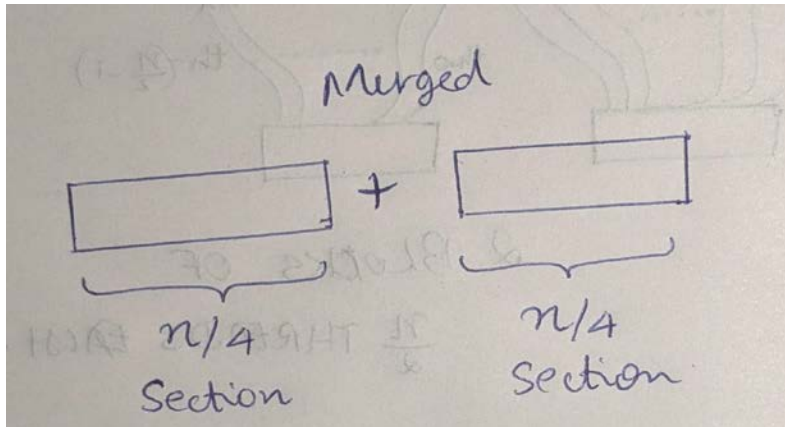 Merged
+
n/4 n/4
Section Section